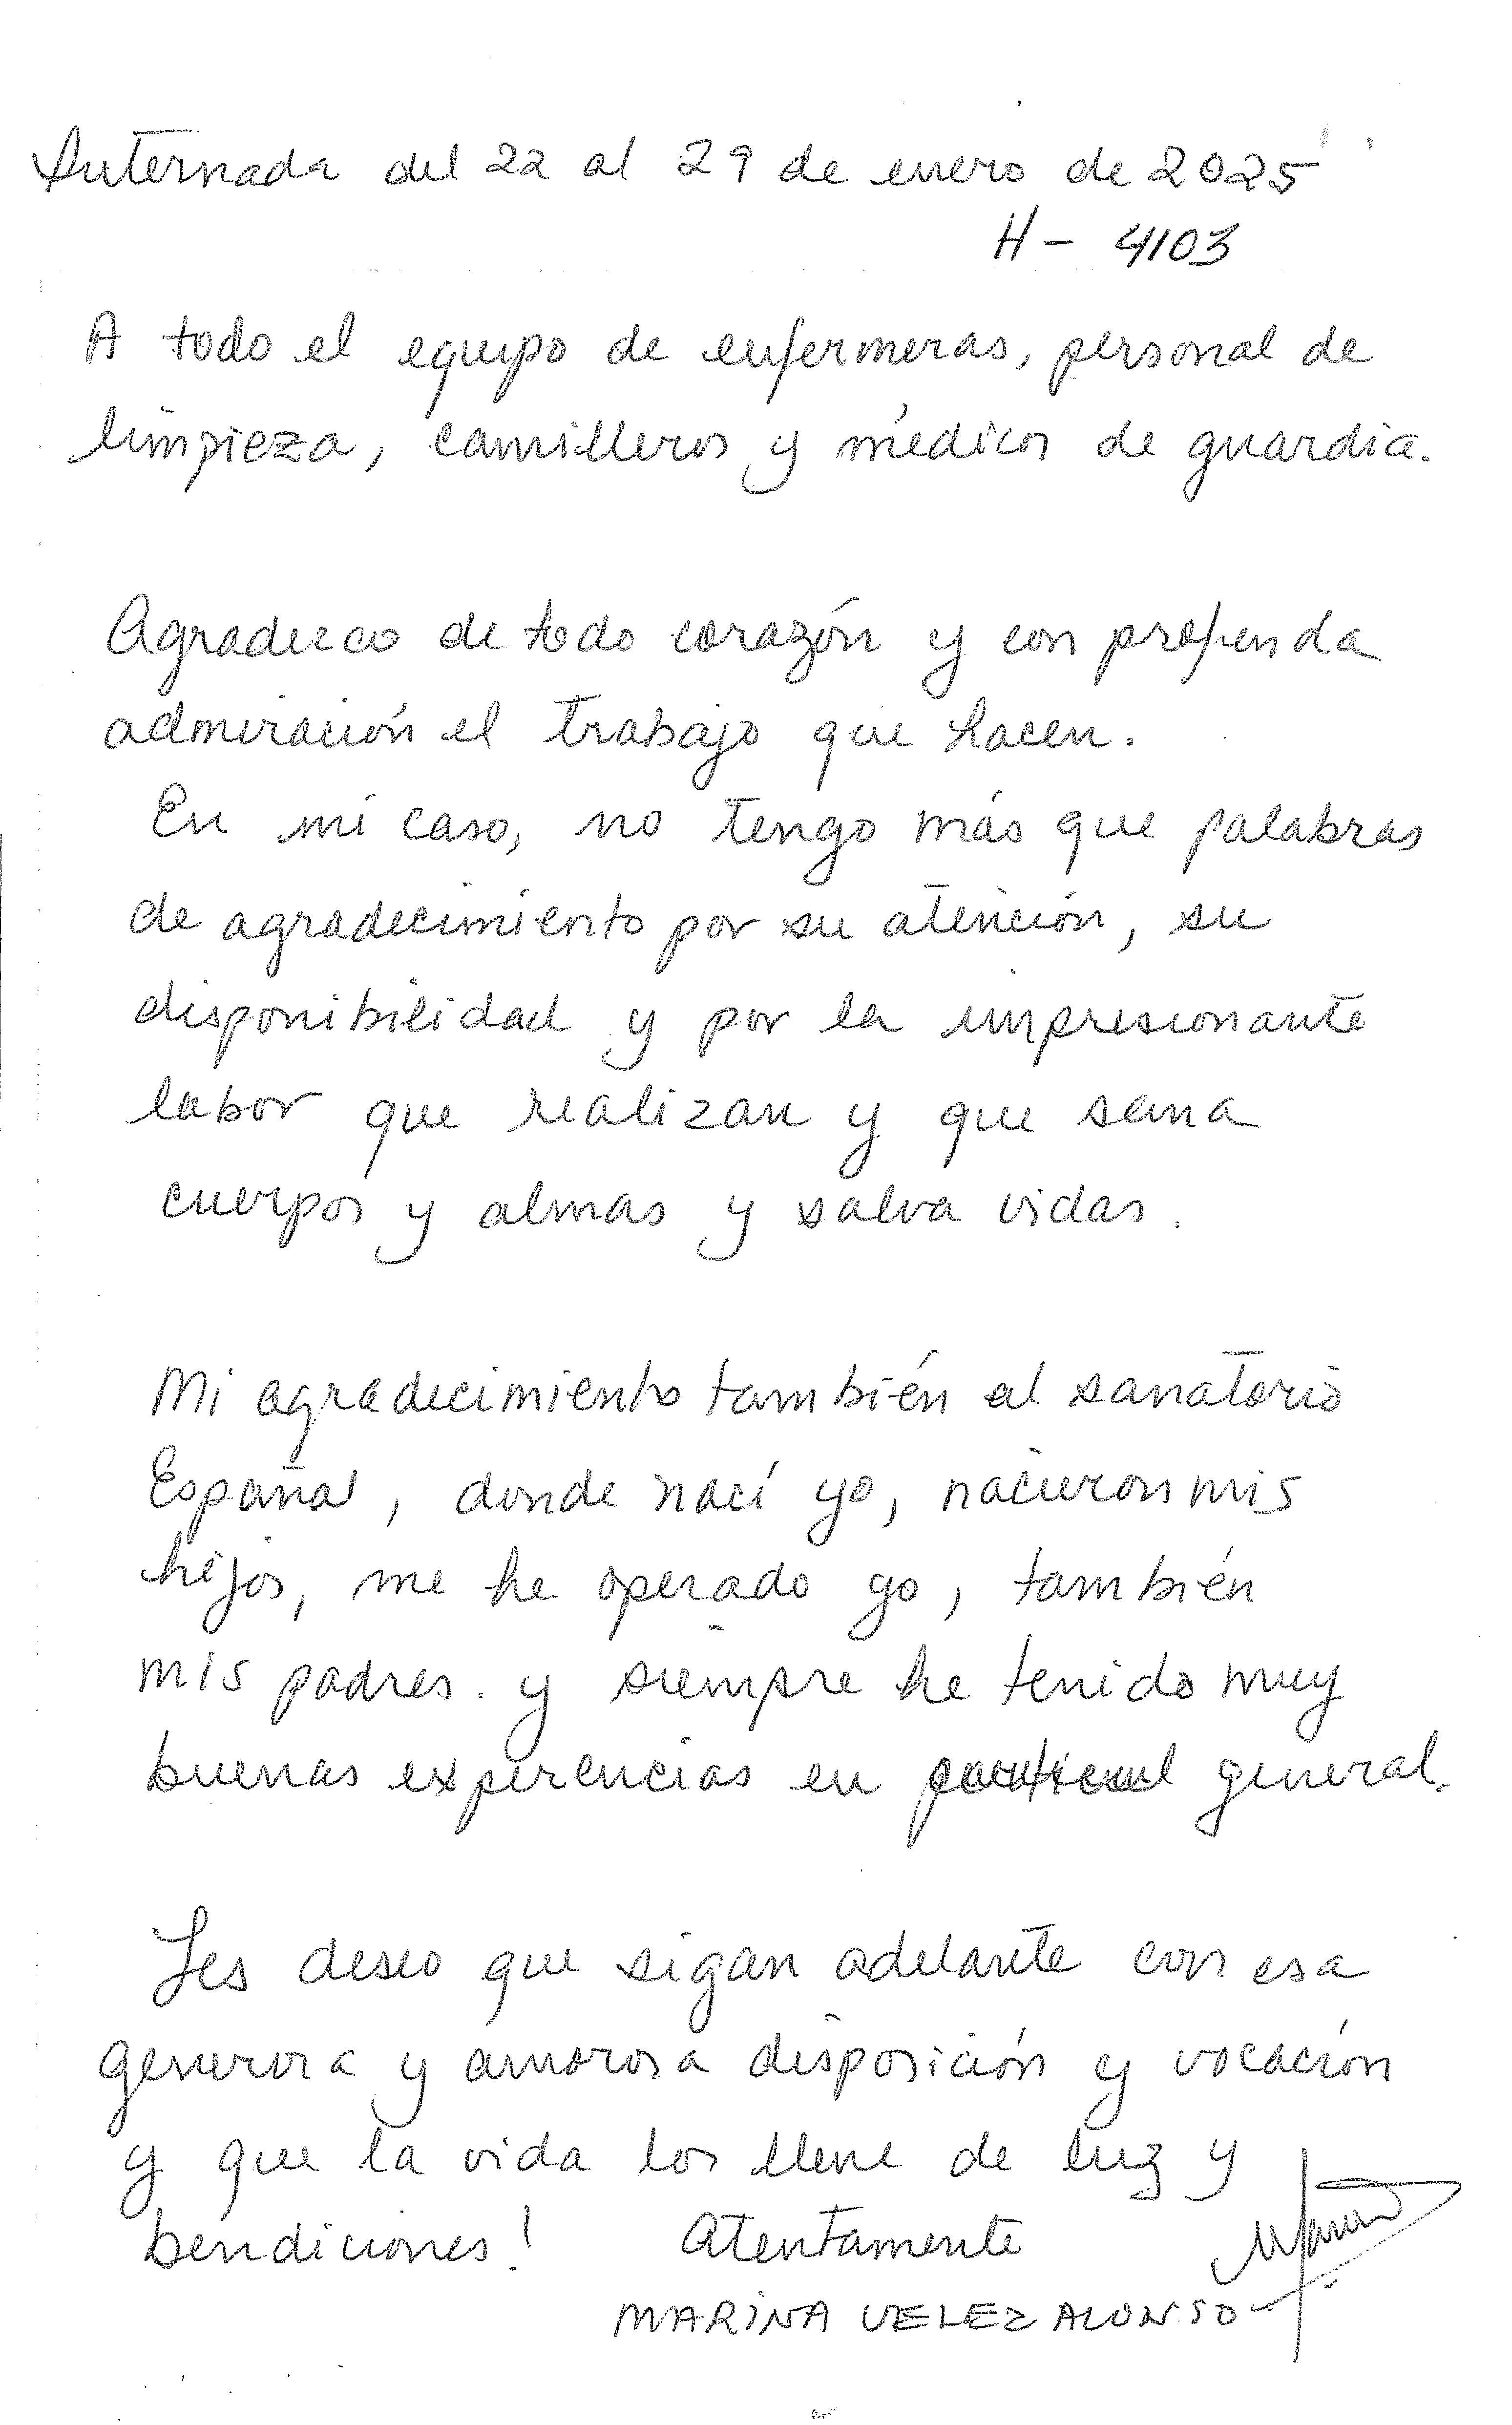 Internada del 22 al 29 de enero de 2025
H - 4103
A todo el equipo de enfermeras, personal de
limpieza, camilleros y médicos de guardia.
Agradezco de todo corazón y con profunda
admiración el trabajo que hacen.
En mi caso, no tengo más que palabras
de agradecimiento por su atención, su
disponibilidad y por la impresionante
labor que realizan y que sana
cuerpos y almas y salva vidas.
Mi agradecimiento también al sanatorio
Español, donde nací yo, nacieron mis
hijos, me he operado yo, también
mis padres. y siempre he tenido muy
buenas experencias en general.
Les deseo que sigan adelante con esa
generosa y amorosa disposición y vocación
y que la vida los llene de luz y
bendiciones! Atentamente
MARINA VELEZ ALONSO